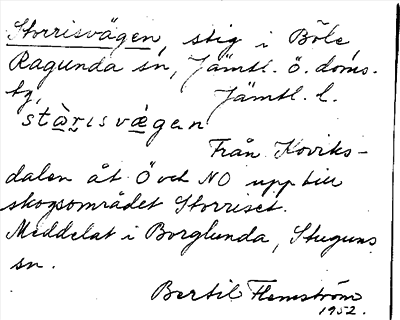 Storrisvägen, stig i Böle,
Ragunda sn, Jämtl. ö. doms.
tg, Jämtl. l.
stàrisvægen
Från Koviks-
dalen åt Ö och NO upp till
skogsområdet Storriset.
Meddelat i Borglunda, Stuguns
sn.
Bertil Flemström
1952.